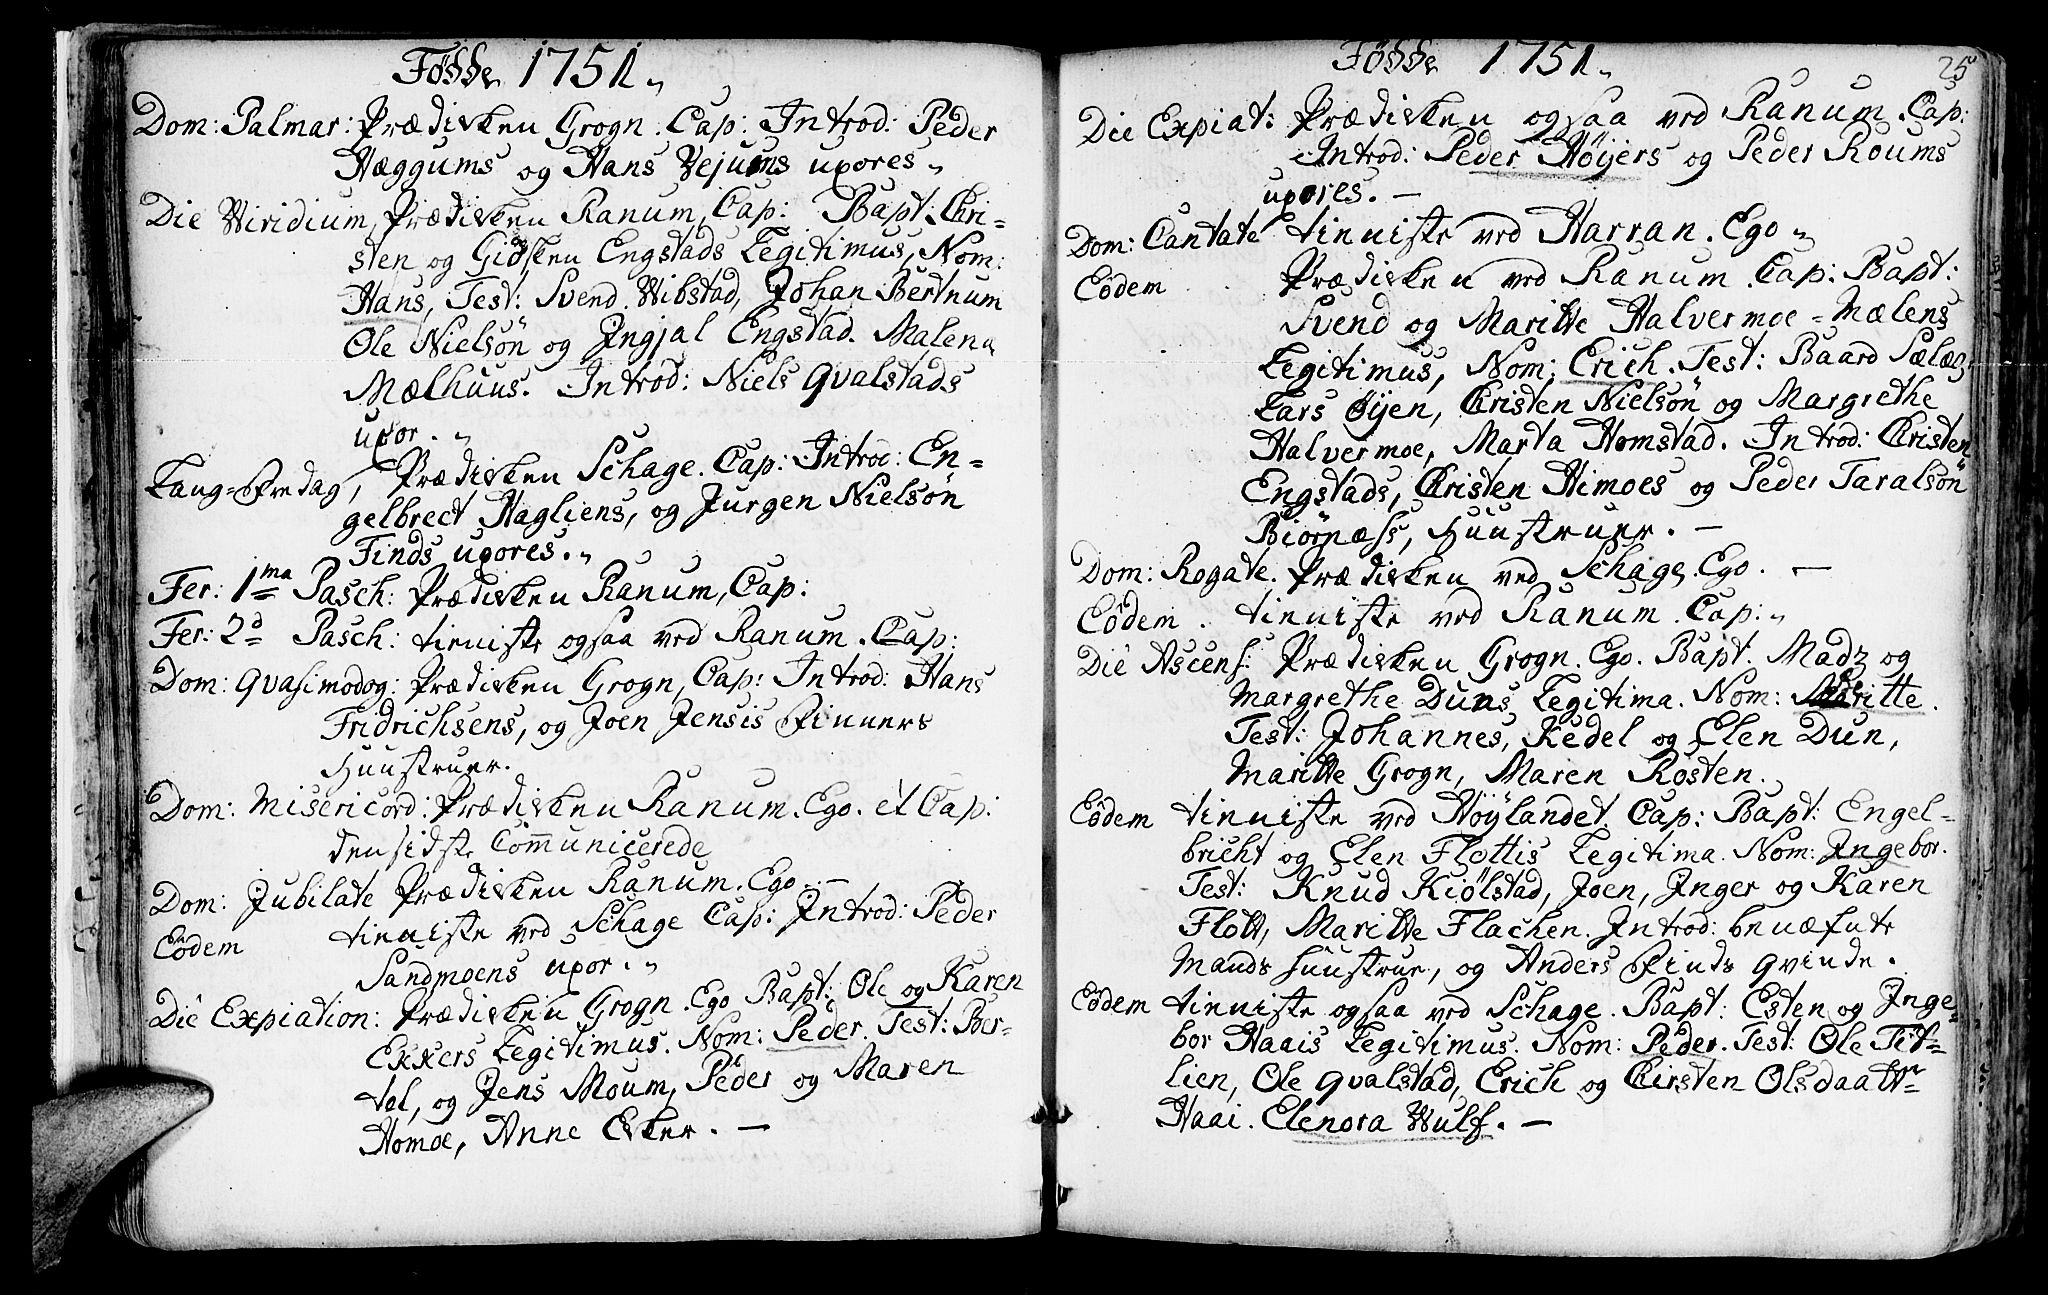 Fødde 1751.
Dom: Palmar: Prædiken Grogn. Cap: Introd: Peder
Hæggums og Hans Vejums uxores.
Die Viridium, Prædiken Ranum, Cap: Bapt: Chri-
sten og Gidsken Engstads Legitimus, Nom:
Hans, Test: Svend Vibstad, Johan Bertnum
Ole Nielsön og Ingjal Engstad. Malena
Mælhuus. Introd: Niels Qvalstads
uxor.
Lang-Fredag, Prædiken Schage. Cap: Introd: En-
gelbrect Hagliens, og Jurgen Nielsön
Finds uxores.
Fer: 1ma Pasch: Prædiken Ranum, Cap:
Fer: 2d Pasch: tieniste ogsaa ved Ranum. Cap:
Dom: Qvasimodog: Prædiken Grogn, Cap: Introd: Hans
Fridrichsens, og Joen Jensis Finners
Huustruer.
Dom: Misericord: Prædiken Ranum. Ego. et Cap:
den sidste Communicerede
Dom: Jubilate Prædiken Ranum. Ego. —
Eôdem tieniste ved Schage Cap: Introd: Peder
Sandmoens uxor.
Diê Expiation: Prædiken Grogn. Ego Bapt: Ole og Karen
Ekkers Legitimus. Nom: Peder. Test: Ber-
tel, og Jens Moum, Peder og Maren
Homoe, Anne Ekker. —
Fødde 1751.
25
Diê Expiat: Prædiken ogsaa ved Ranum. Cap:
Introd: Peder Høyers og Peder Roums
uxores. —
Dom: Cantate tieniste ved Harran. Ego.
Eôdem Prædiken ved Ranum. Cap: Bapt:
Svend og Maritte Halvermoe=Mælens
Legitimus, Nom: Erich. Test: Baard Sæleg,
Lars Øyen, Christen Nielsön og Margrethe
Halvermoe, Marta Homstad. Introd: Christen
Engstads, Christen Himoes og Peder Taralsön
Biørnæss, Huustruer. —
Dom: Rogate. Prædiken ved Schage. Ego. —
Eôdem. tieniste ved Ranum. Cap:
Diê Ascens: Prædiken Grogn. Ego. Bapt. Madz og
Margrethe Duns Legitima. Nom: Maritte.
Test: Johannes, Kedel og Elen Dun,
Maritte Grogn, Maren Rosten.
Eôdem tieniste ved Høylandet. Cap: Bapt: Engel-
bricht og Elen Flottis Legitima. Nom: Ingebor.
Test: Knud Kiölstad, Joen, Inger og Karen
Flott, Maritte Flachen. Introd: benæfnte
Mands Huustrue, og Anders Finds Qvinde.
Eôdem tieniste ogsaa ved Schage. Bapt: Esten og Inge-
bor Haais Legitimus. Nom: Peder. Test: Ole Tet-
lien, Ole Qvalstad, Erich og Kirsten Olsdaattr
Haai. Elenora Wulf. —